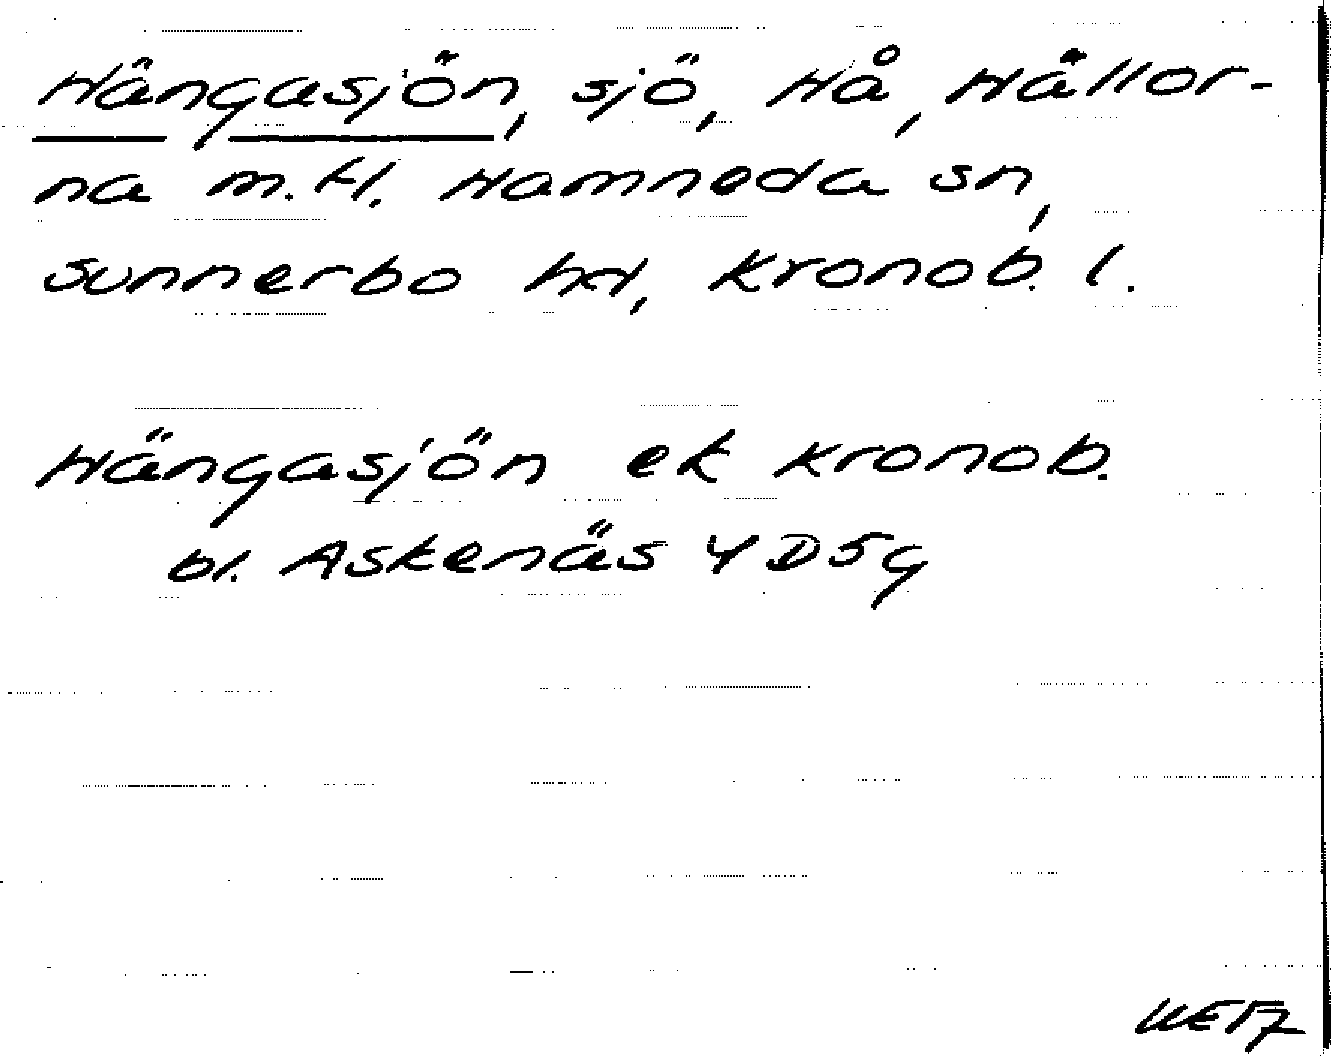 Hängasjön, sjö, Hå, Hållor-
na m.fl. Hamneda sn,
Sunnerbo hd, Kronob. l.
Hängasjön ek Kronob.
bl. Askenäs 4D5g